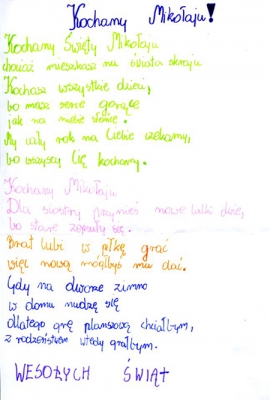 Kochany Mikołaju!
Kochany Święty Mikołaju
chociaż mieszkasz na świata skraju
Kochasz wszystkie dzieci,
bo masz serce gorące
jak na niebie słońce.
My cały rok na Ciebie czekamy,
bo wszyscy Cię kochamy.
Kochany Mikołaju
Dla siostry przynieś nowe lalki dziś,
bo stare zepsuły się.
Brat lubi w piłkę grać
więc nową mógłbyś mu dać.
Gdy na dworze zimno
w domu nudzę się
dlatego grę planszową chciałbym,
z rodzeństwem wtedy grałbym.
WESOŁYCH ŚWIĄT